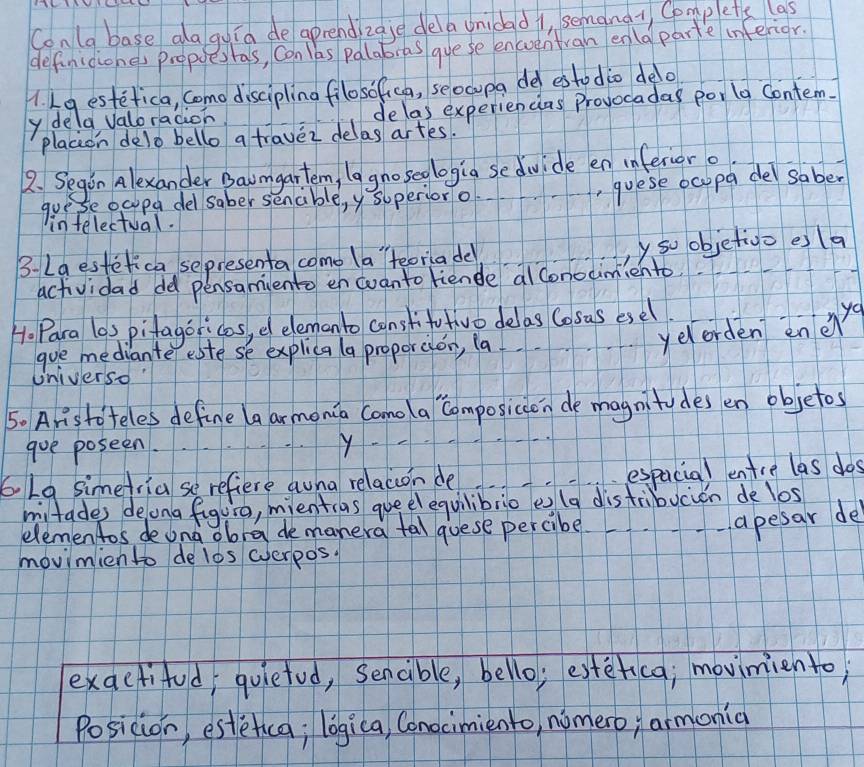 Con la base a la guía de aprendizaje de la unidad 1, semana-1, Complete las
definiciones propuestas, Con las palabras que se encuentran en la parte inferior.
1. La estética, Como disciplina filosófica, se ocupa del estudio de lo
y de la valoración ......... de las experiencias Provocadas por la Contem-
placion de lo bello a travéz de las artes.
2. Según Alexander Baumgartem, la gnoseología se divide en inferior o
que se ocupa del saber sencible, y superior o .........., que se ocupa del saber
intelectual.
3-La estética se presenta como la "teoria del .......... y su objetivo es la
actividad del pensamiento en cuanto tiende al conocimiento .........
4. Para los pitagóricos, el elemento constitutivo de las Cosas es el ......... ya
que mediante este se explica la proporción, la .......... y el orden en el
universo"
5. Aristóteles define la armonía como la "Composición de magnitudes en objetos
que poseen .......... y ..........
6. La simetría se refiere a una relación de .......... espacial entre las dos
mitades de una figura, mientras que el equilibrio es la distribución de los
elementos de una obra de manera tal que se percibe .......... a pesar del
movimiento de los cuerpos.
exactitud; quietud, Sencible, bello; estética; movimiento;
Posición, estética; lógica, Conocimiento, número; armonía